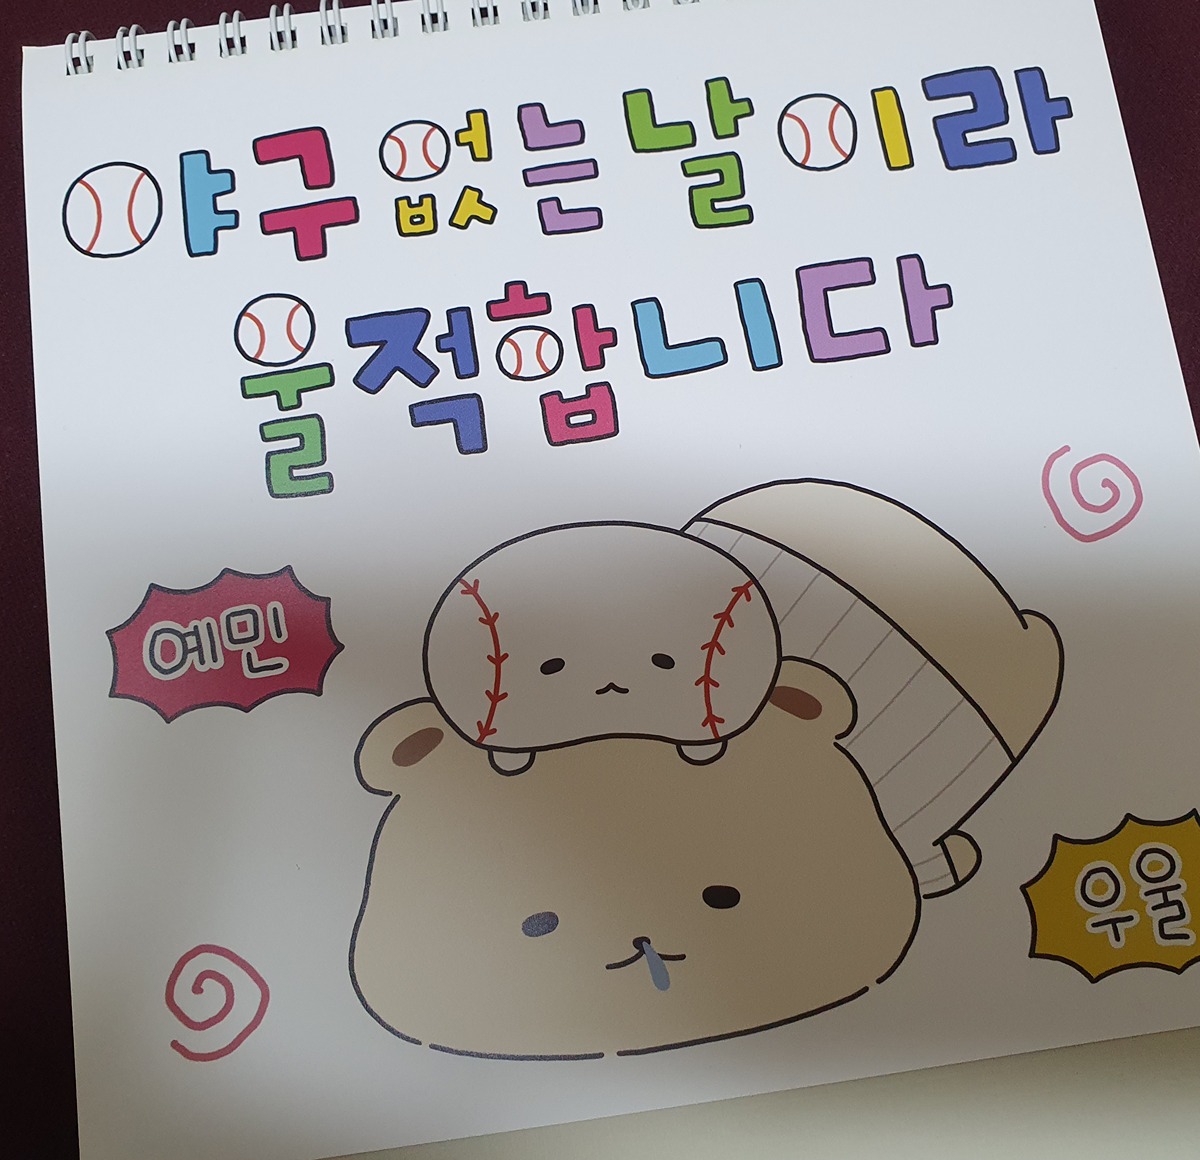 야구 없는 날이라
울적합니다
예민
우울